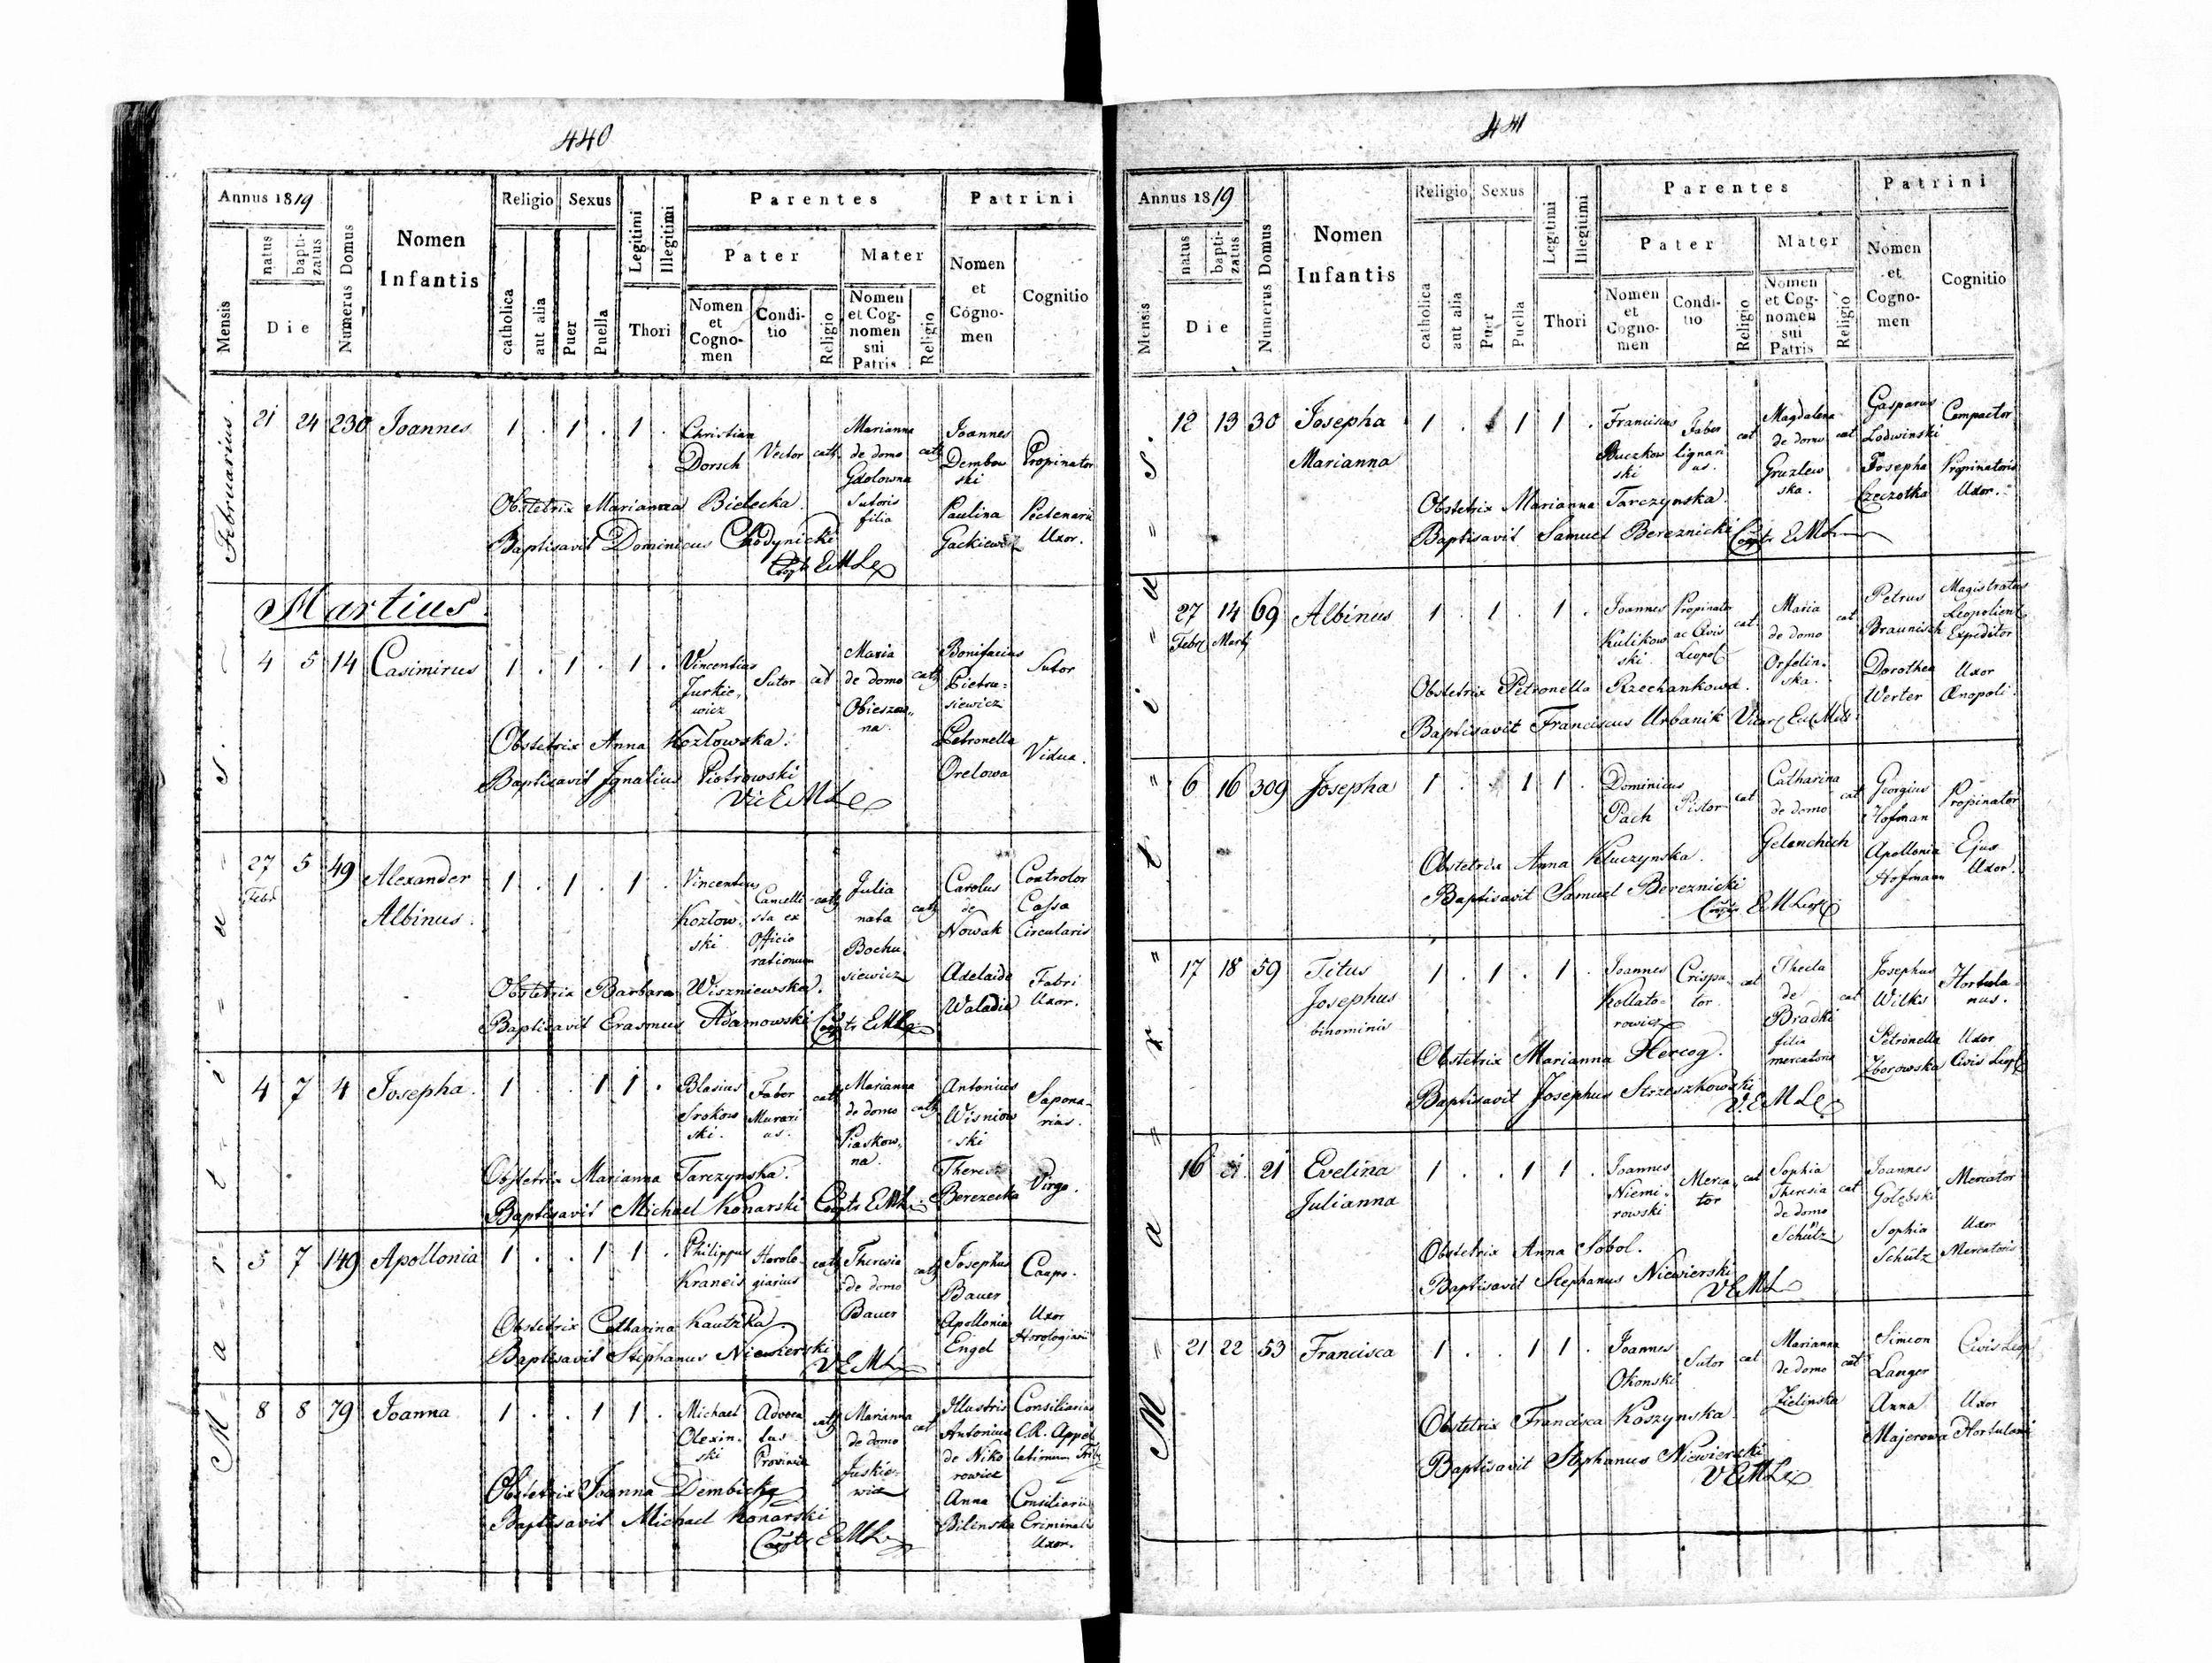 440
Annus 1819
Mensis
natus
baptizatus
Die
Numerus Domus
Nomen
Infantis
Religio
catholica
aut alia
Sexus
Puer
Puella
Legitimi
Illegitimi
Thori
Parentes
Pater
Nomen
et
Cogno-
men
Condi-
tio
Religio
Mater
Nomen
et Cog-
nomen
sui
Patris
Religio
Patrini
Nomen
et
Cogno-
men
Cognitio
Februarius.
21 24 230 Joannes 1 . 1 . 1 . Christian Dorsch Vector cath Marianna de domo Gdolowna Sutoris filia cath
Joannes Dembowski Propinator
Paulina Pectenarii Uxor.
Obstetrix Marianna Bielecka.
Baptisavit Dominicus Chodynicki
Martius.
4 5 14 Casimirus 1 . 1 . 1 . Vincentius Jurkiewicz Sutor cat Maria de domo Obieszowna cath
Bonifacius Pietrasiewicz Sutor
Petronella Orelowa Vidua.
Obstetrix Anna Kozlowska.
Baptisavit Ignatius Piotrowski
27 Febr 5 49 Alexander Albinus. 1 . 1 . 1 . Vincentius Kozlowski Cancellista ex Officio rationum cath Julia nata Bochusiewicz cath
Carolus de Nowak Controlor Cassa Circularis
Adelaide Waladin Fabri Uxor.
Obstetrix Barbara Wiszniewska.
Baptisavit Erasmus Adamowski
4 7 4 Josepha. 1 . . 1 1 . Blasius Srokowski. Faber Murarius. cath Marianna de domo Piaskowna. cath
Antonius Wisniowski Saponarius.
Theresia Berezecka Virgo.
Obstetrix Marianna Tarczynska.
Baptisavit Michael Konarski
5 7 149 Apollonia 1 . . 1 1 . Philippus Kraneis Horologiarius cath Theresia de domo Bauer cath
Josephus Bauer Caupo.
Apollonia Engel Uxor Horologiarii
Obstetrix Catharina Kautzka.
Baptisavit Stephanus Niewierski
8 8 79 Joanna 1 . . 1 1 . Michael Olexinski Advocatus Provinciae cath Marianna de domo Juskiewicz cat
Illustris Antonius de Nikorowicz Consiliarius C.R. Appellationum Trib
Anna Bilinska Consiliarii Criminalis Uxor.
Obstetrix Joanna Dembicka
Baptisavit Michael Konarski
441
Annus 1819
Mensis
natus
baptizatus
Die
Numerus Domus
Nomen
Infantis
Religio
catholica
aut alia
Sexus
Puer
Puella
Legitimi
Illegitimi
Thori
Parentes
Pater
Nomen
et
Cogno-
men
Condi-
tio
Religio
Mater
Nomen
et Cog-
nomen
sui
Patris
Religio
Patrini
Nomen
et
Cogno-
men
Cognitio
Martius.
12 13 30 Josepha Marianna 1 . 1 1 . Franciscus Buczkowski Faber lignarius. cat Magdalena de domo Gruzlewska. cat
Gasparus Lodwinski Compactor
Josepha Czeczotka Propinatoris Uxor.
Obstetrix Marianna Tarczynska.
Baptisavit Samuel Bereznicki
27 Febr 14 Marty 69 Albinus 1 . 1 . 1 . Joannes Kulikowski Propinator ac Civis Leopol cat Maria de domo Orfelinska. cat
Petrus Braunisch Magistratus Leopoliens Expeditor
Dorothea Werter Uxor Œnopoli.
Obstetrix Petronella Rzechankowa.
Baptisavit Franciscus Urbanik
6 16 309 Josepha 1 . 1 1 . Dominicus Pach Pistor cat Catharina de domo Gelenchich cat
Georgius Hofman Propinator
Apollonia Hofmann Ejus Uxor.
Obstetrix Anna Kluczynska.
Baptisavit Samuel Bereznicki
17 18 59 Titus Josephus binominis 1 . 1 . 1 . Joannes Kollatorowicz Crispator. cat Thecla de Bradki filia mercatoris cat
Josephus Wilks Hortulanus.
Petronella Zborowska Uxor Civis Leopl
Obstetrix Marianna Hercog.
Baptisavit Josephus Strzeszkowski
16 21 21 Evelina Julianna 1 . . 1 1 . Joannes Niemirowski Mercator cat Sophia Theresia de domo Schütz cat
Joannes Golębski Mercator
Sophia Schütz Uxor Mercatoris
Obstetrix Anna Sobol.
Baptisavit Stephanus Niewierski
21 22 53 Francisca 1 . . 1 1 . Joannes Okonski Sutor cat Marianna de domo Zielinska cat
Simeon Langer Civis Leop
Anna Majerowa Uxor Hortulani
Obstetrix Francisca Koszynska
Baptisavit Stephanus Niewierski